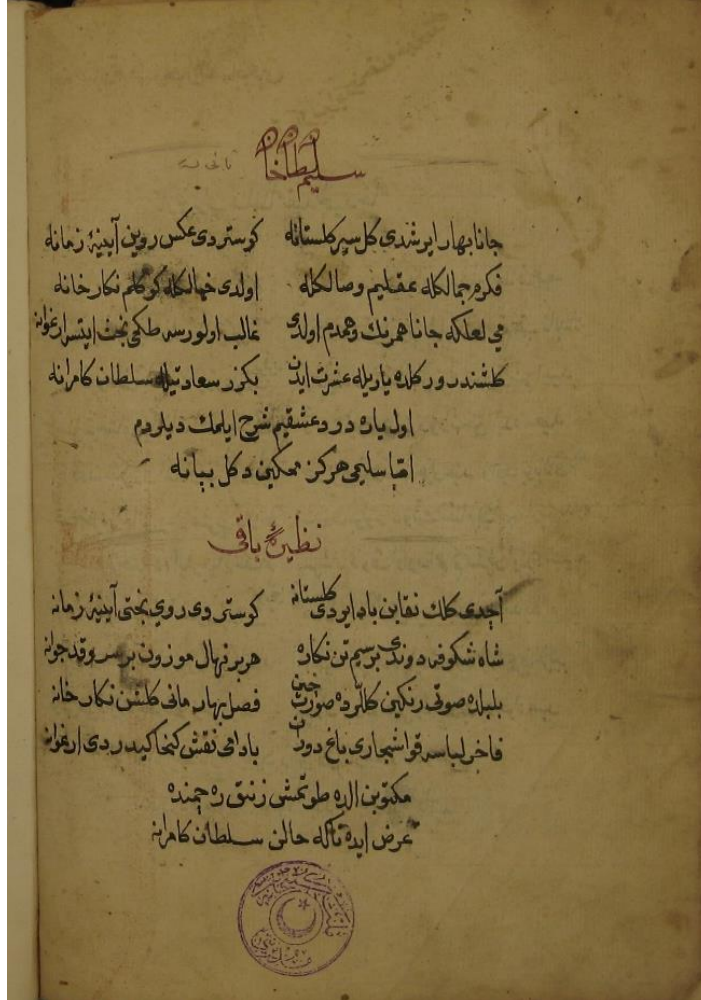 سلطان سليم خان ثانی
جانا بهار ايرشدی كل سير كلستانه كوستردی عكس روين آيينۀ زمانه
فكرم جمالكله عقليم وصالكله اولدی خيالكله كوكلم نكارخانه
می لعلكه جانا همرنك و همدم اولدی غالب اولورسه طكمی بحث ايتسه ارغوانه
كلشندرور كلده ياريله عشرت ايدن بكزر سعادتيله سلطان كامرانه
اول ياره درد عشقيم شرح ايلمك ديلردم
امّا سليمی هركز ممكين دكل بيانه
نظيرۀ باقی
آچدی كلك نقابن باد ايردی كلستانه كوستردی روی بختی آيينۀ زمانه
شاه شكوفه دوندی برسيم تن نكاره هر بر نهال موزون بر سرو قد جوانه
بلبلده صوتی رنكين كللرده صورت چين فصل بهار مانی كلشن نكارخانه
فاخر لباسه قو اشجاری باغ دوران بادامی نقش كمخا كيدردی ارغوانه
مكتوبن الده طوتمش زنبق ره چمنده
عرض ايده تاكه حالن سلطان كامرانه